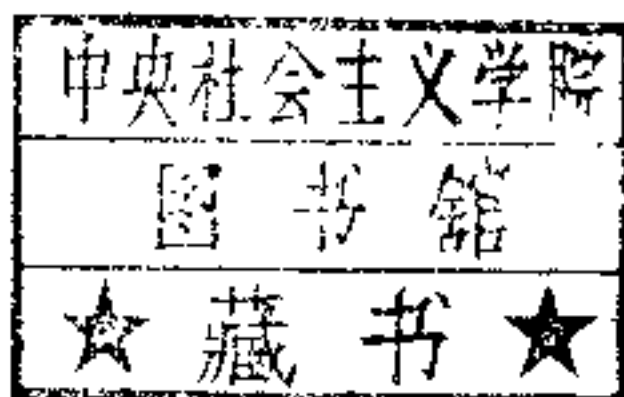 中央社会主义学院
图书馆
藏书